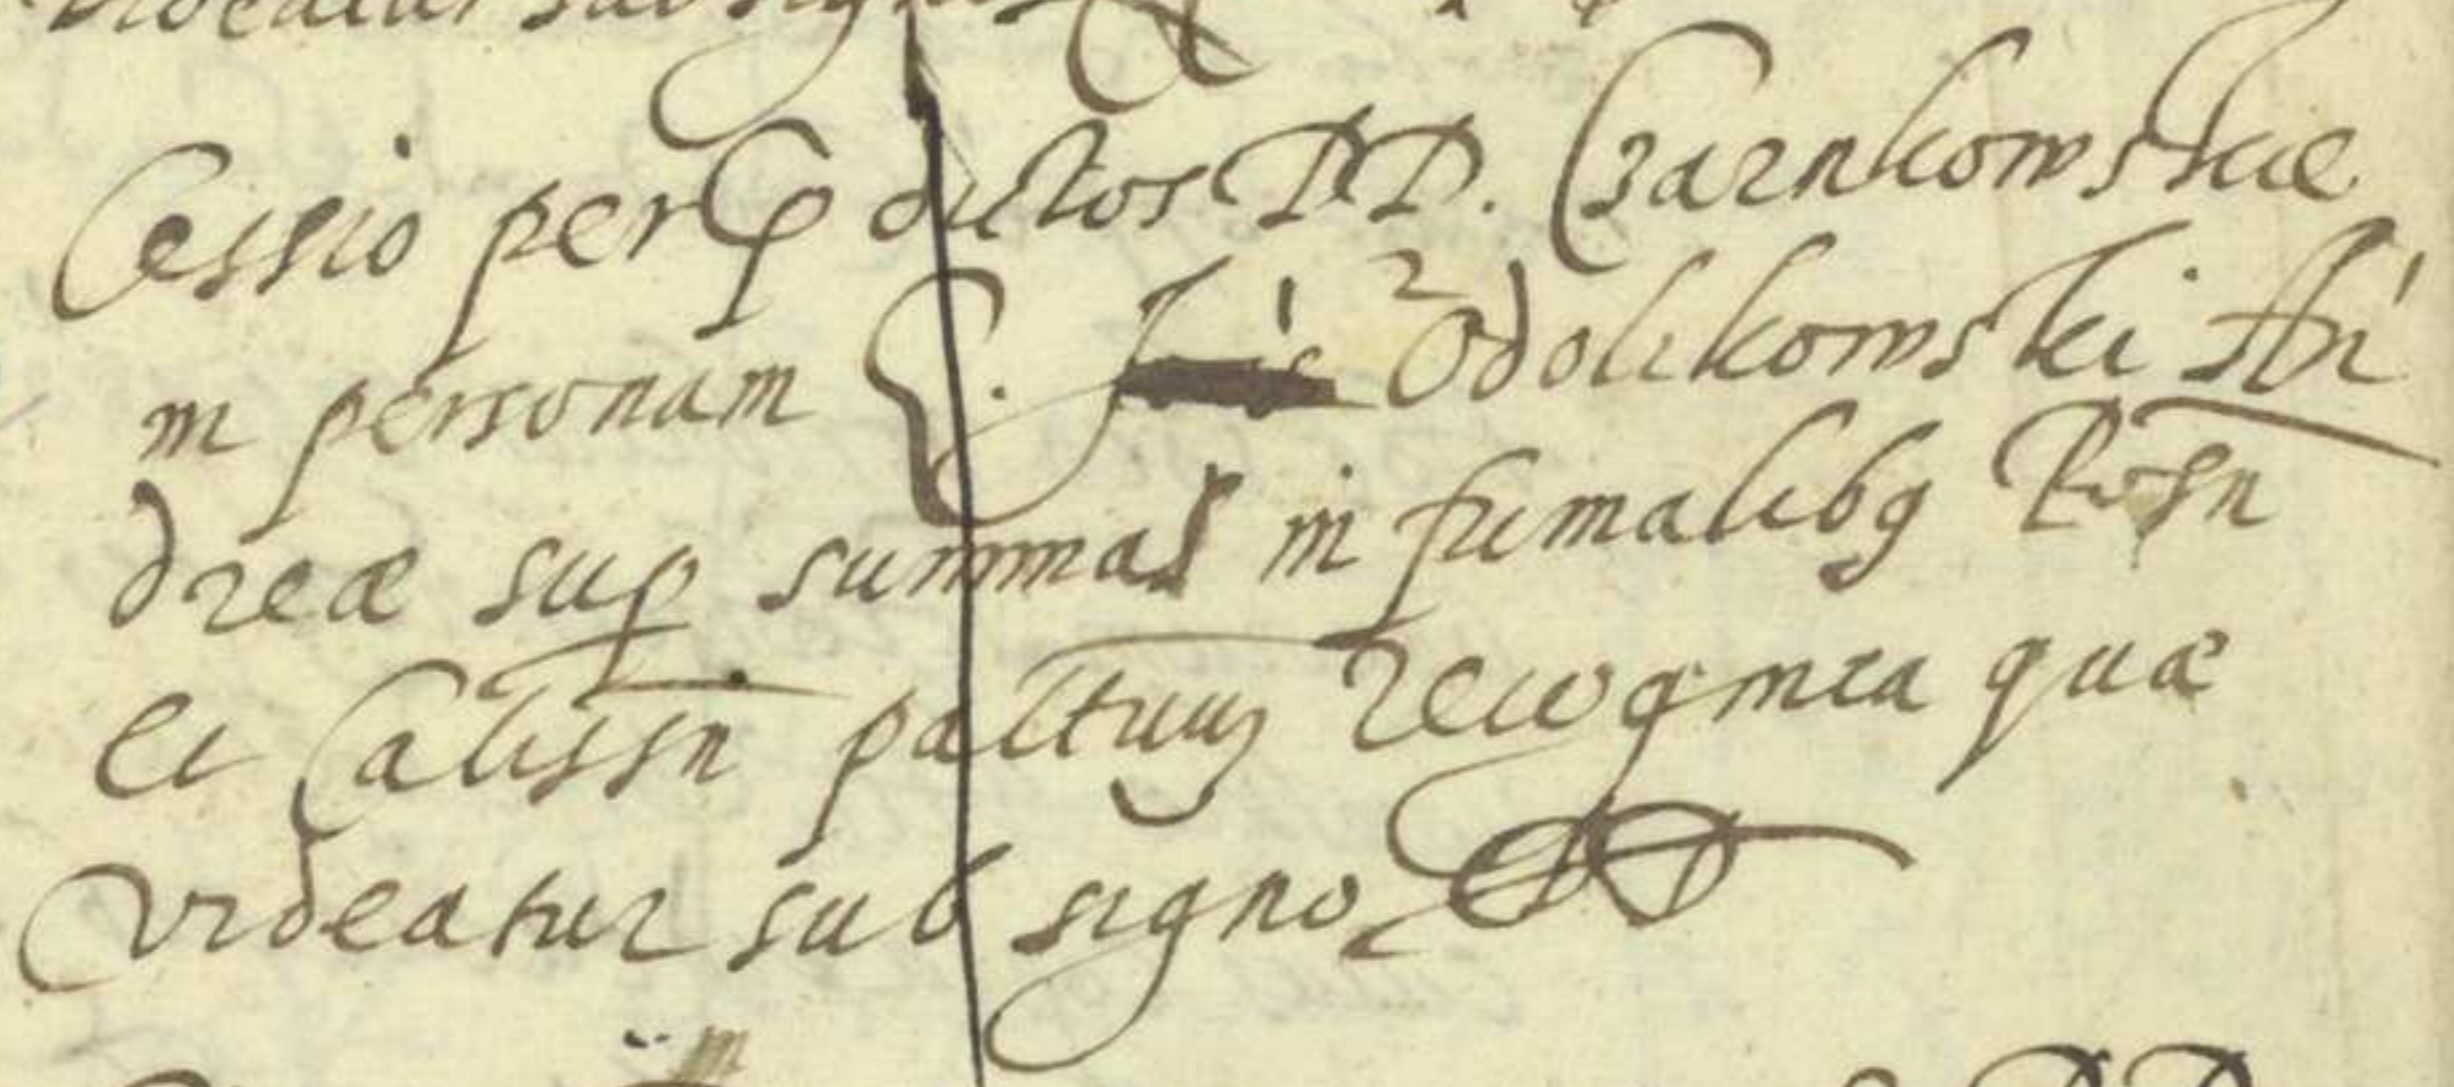 videatur sub signo
Cessio per G p dictos DD. Czarnkowskie
in personam G. Odolikowski An
dreæ sup summas in fumalibq Posn
et Calissn palttuuz recognita quæ
videatur sub signo